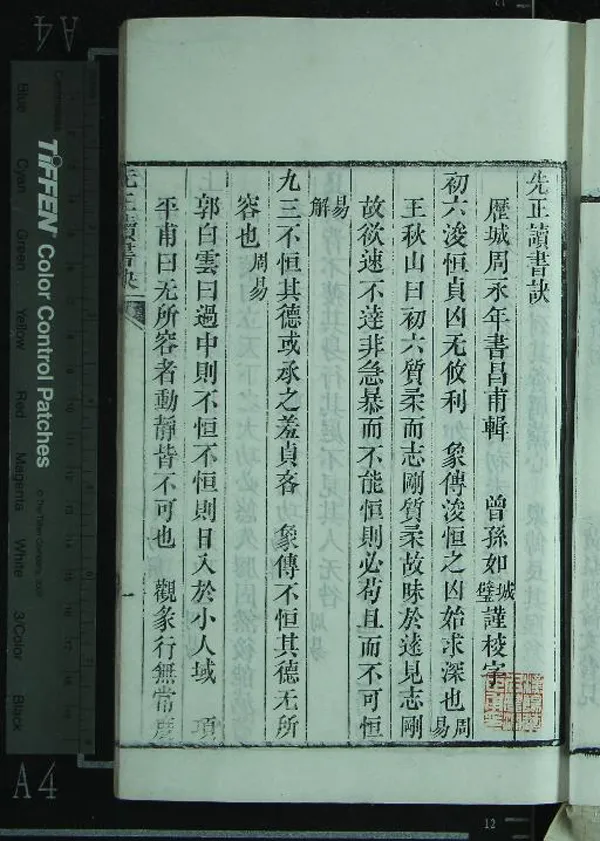 先正讀書訣
歷城周永年書昌甫輯 曾孫如城璧謹校字
初六浚恒貞凶无攸利 象傳浚恒之凶始求深也周易
王秋山曰初六質柔而志剛質柔故昧於遠見志剛
故欲速不達非急暴而不能恒則必苟且而不可恒
易解
九三不恒其德或承之羞貞吝 象傳不恒其德无所
容也周易
郭白雲曰過中則不恒不恒則日入於小人域 項
平甫曰无所容者動靜皆不可也 觀象行無常度
先正讀書訣
一
TIFFEN Color Control Patches
© The Tiffen Company, 2000
Centimetres
Blue Cyan Green Yellow Red Magenta White 3/Color Black
A4
A4
12